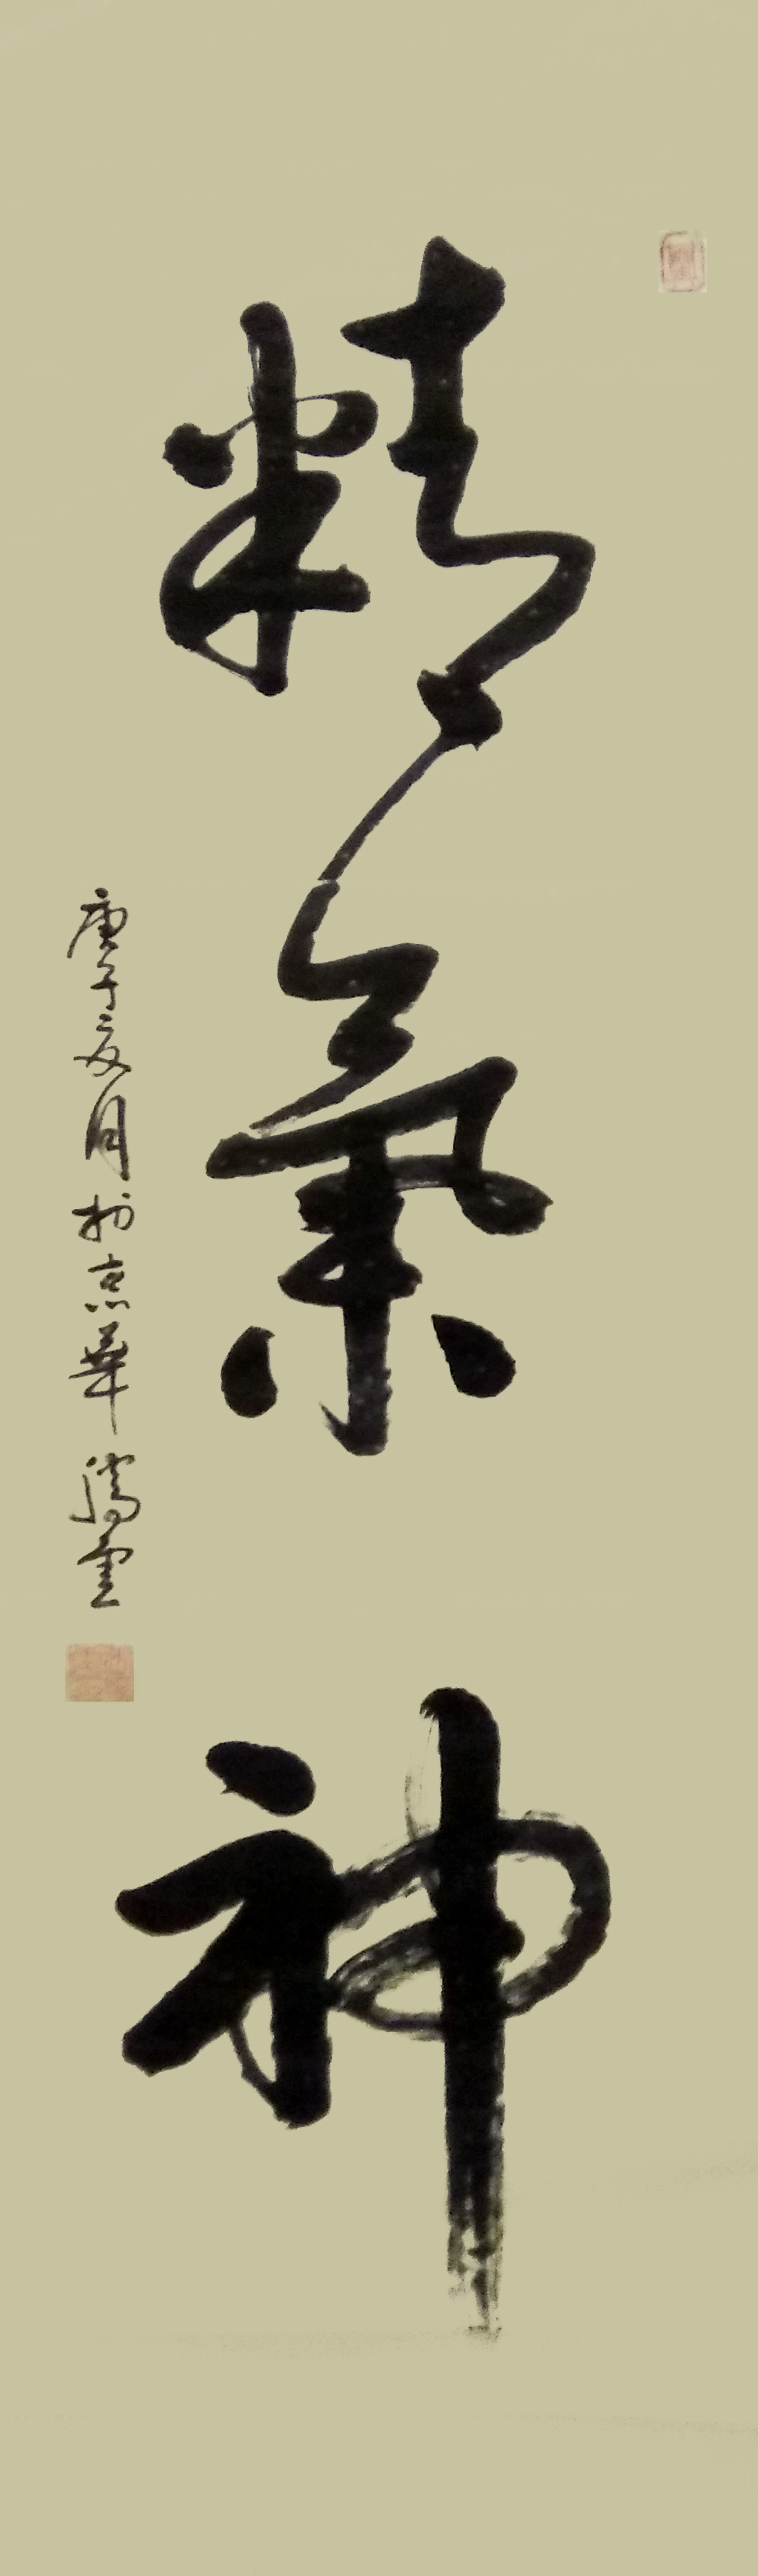 精氣神
庚子夏月於京華騰雲